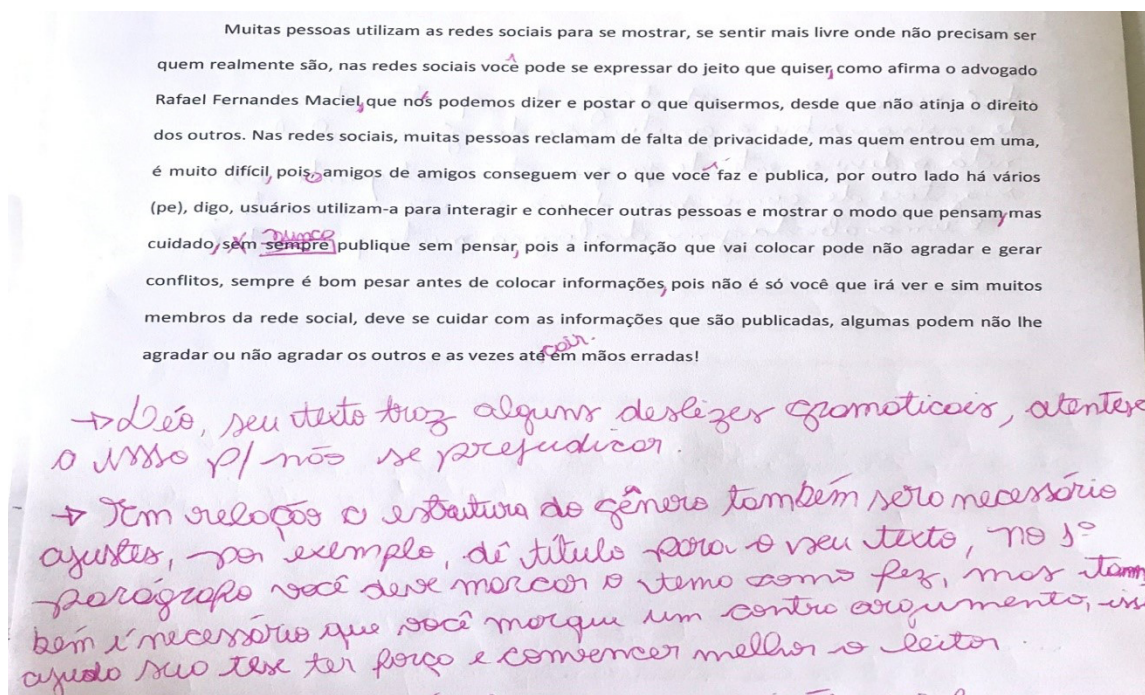 Muitas pessoas utilizam as redes sociais para se mostrar, se sentir mais livre onde não precisam ser
quem realmente são, nas redes sociais você pode se expressar do jeito que quiser, como afirma o advogado
Rafael Fernandes Maciel, que nós podemos dizer e postar o que quisermos, desde que não atinja o direito
dos outros. Nas redes sociais, muitas pessoas reclamam de falta de privacidade, mas quem entrou em uma,
é muito difícil, pois, amigos de amigos conseguem ver o que você faz e publica, por outro lado há vários
(pe), digo, usuários utilizam-a para interagir e conhecer outras pessoas e mostrar o modo que pensam, mas
nunca
cuidado, sem sempre publique sem pensar, pois a informação que vai colocar pode não agradar e gerar
conflitos, sempre é bom pesar antes de colocar informações, pois não é só você que irá ver e sim muitos
membros da rede social, deve se cuidar com as informações que são publicadas, algumas podem não lhe
cair.
agradar ou não agradar os outros e as vezes até em mãos erradas!
→ Léo, seu texto traz alguns deslizes gramaticais, atente-se
a isso p/ não se prejudicar.
→ Em relação a estrutura do gênero também será necessário
ajustes, por exemplo, dê título para o seu texto, no 1º
parágrafo você deve marcar o tema como fez, mas tam
bém é necessário que você marque um contra argumento, is
ajuda sua tese ter força e convencer melhor o leitor.